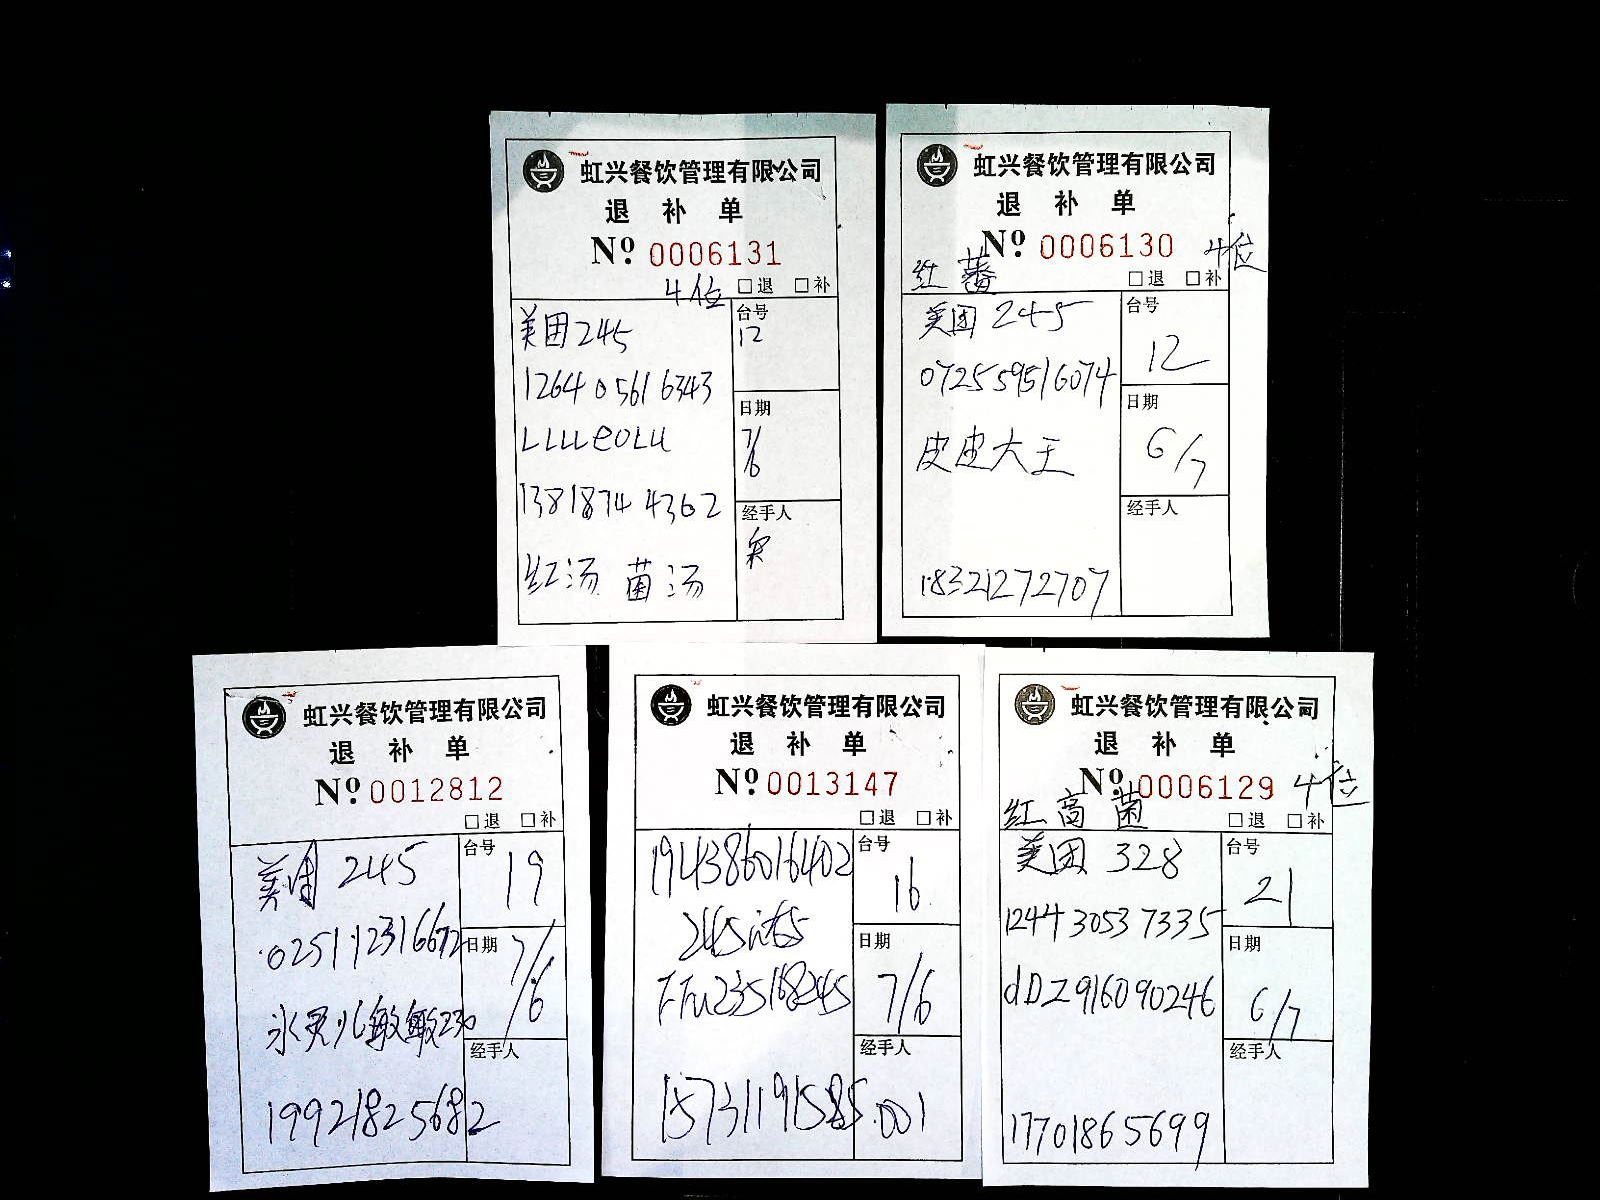 虹兴餐饮管理有限公司
退 补 单
Nº 0006131
4位 □退 □补
美团245
台号
12
1264 0561 6343
日期
7/6
LLLUeOLU
13818744362
经手人
红汤 菌汤
虹兴餐饮管理有限公司
退 补 单
Nº 0006130 4位
红 蕃 □退 □补
美团 245
台号
12
072559516074
日期
6/7
皮皮大王
经手人
18321272707
虹兴餐饮管理有限公司
退 补 单
Nº 0012812
□退 □补
美团 245
台号
19
025112316672
日期
7/6
冰灵儿敏敏230
经手人
19921825682
虹兴餐饮管理有限公司
退 补 单
Nº 0013147
□退 □补
194386016402
台号
16
日期
7/6
FFu235168245
经手人
15731191585
001
虹兴餐饮管理有限公司
退 补 单
Nº 0006129 4位
红 高 菌 □退 □补
美团 328
台号
21
1244 3053 7335
日期
6/7
dDZ916090246
经手人
17701865699